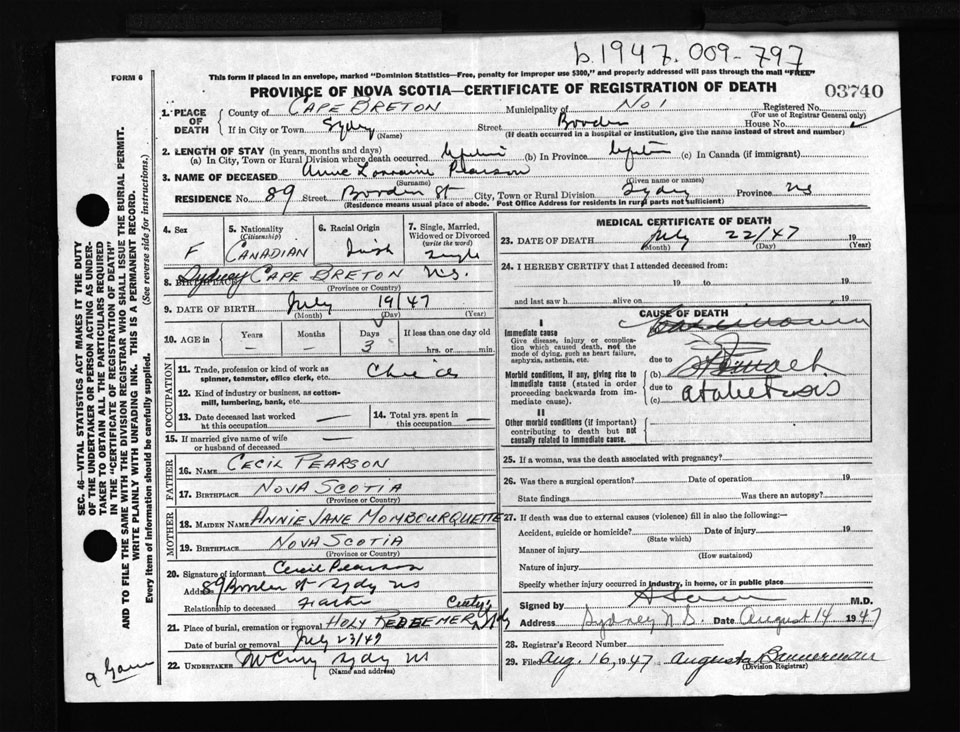 b.1947.009-797
FORM 6
This form if placed in an envelope, marked "Dominion Statistics—Free, penalty for improper use $300," and properly addressed will pass through the mail "FREE"
PROVINCE OF NOVA SCOTIA—CERTIFICATE OF REGISTRATION OF DEATH
03740
1. PLACE OF DEATH
County of CAPE BRETON Municipality of No 1 Registered No.
(For use of Registrar General only)
If in City or Town Sydney Street Borden House No.
(Name) (If death occurred in a hospital or institution, give the name instead of street and number)
2. LENGTH OF STAY (in years, months and days)
(a) In City, Town or Rural Division where death occurred (b) In Province (c) In Canada (if immigrant)
3. NAME OF DECEASED Anne Lorraine Pearson
(Surname) (Given name or names)
RESIDENCE No. 89 Street Borden St City, Town or Rural Division Sydney Province NS
(Residence means usual place of abode. Post Office Address for residents in rural parts not sufficient)
4. Sex F
5. Nationality (Citizenship) CANADIAN
6. Racial Origin Irish
7. Single, Married, Widowed or Divorced (write the word) Single
8. BIRTHPLACE Sydney CAPE BRETON N.S.
(Province or Country)
9. DATE OF BIRTH July 19/47
(Month) (Day) (Year)
10. AGE in Years – Months – Days 3 If less than one day old hrs. or min.
OCCUPATION
11. Trade, profession or kind of work as spinner, teamster, office clerk, etc.
12. Kind of industry or business, as cotton-mill, lumbering, bank, etc.
13. Date deceased last worked at this occupation —
14. Total yrs. spent in this occupation —
15. If married give name of wife or husband of deceased —
FATHER
16. NAME CECIL PEARSON
17. BIRTHPLACE NOVA SCOTIA
(Province or Country)
MOTHER
18. MAIDEN NAME ANNIE JANE MOMBOURQUETTE
19. BIRTHPLACE NOVA SCOTIA
(Province or Country)
20. Signature of informant Cecil Pearson
Address 89 Borden St Sydney NS
Relationship to deceased Father
21. Place of burial, cremation or removal HOLY REDEEMER Cemty Sydney
Date of burial or removal July 23/47
22. UNDERTAKER Sydney NS
(Name and address)
MEDICAL CERTIFICATE OF DEATH
23. DATE OF DEATH July 22/47 19
(Month) (Day) (Year)
24. I HEREBY CERTIFY that I attended deceased from:
19 to 19
and last saw h alive on 19
CAUSE OF DEATH
I
Immediate cause
Give disease, injury or complication which caused death, not the mode of dying, such as heart failure, asphyxia, asthenia, etc.
due to
Morbid conditions, if any, giving rise to immediate cause (stated in order proceeding backwards from immediate cause).
(b)
due to
(c) atalectasis
II
Other morbid conditions (if important) contributing to death but not causally related to immediate cause.
25. If a woman, was the death associated with pregnancy?
26. Was there a surgical operation? Date of operation 19
State findings Was there an autopsy?
27. If death was due to external causes (violence) fill in also the following:—
Accident, suicide or homicide? Date of injury 19
(State which)
Manner of injury
(How sustained)
Nature of injury
Specify whether injury occurred in industry, in home, or in public place
Signed by M.D.
Address Sydney N.S. Date August 14 1947
28. Registrar's Record Number
29. Filed Aug. 16, 1947 Augusta Bannerman
(Division Registrar)
SEC. 46—VITAL STATISTICS ACT MAKES IT THE DUTY OF THE UNDERTAKER OR PERSON ACTING AS UNDERTAKER TO OBTAIN ALL THE PARTICULARS REQUIRED IN THE "CERTIFICATE OF REGISTRATION OF DEATH" AND TO FILE THE SAME WITH THE DIVISION REGISTRAR WHO SHALL ISSUE THE BURIAL PERMIT.
WRITE PLAINLY WITH UNFADING INK. THIS IS A PERMANENT RECORD.
Every item of information should be carefully supplied. (See reverse side for instructions.)